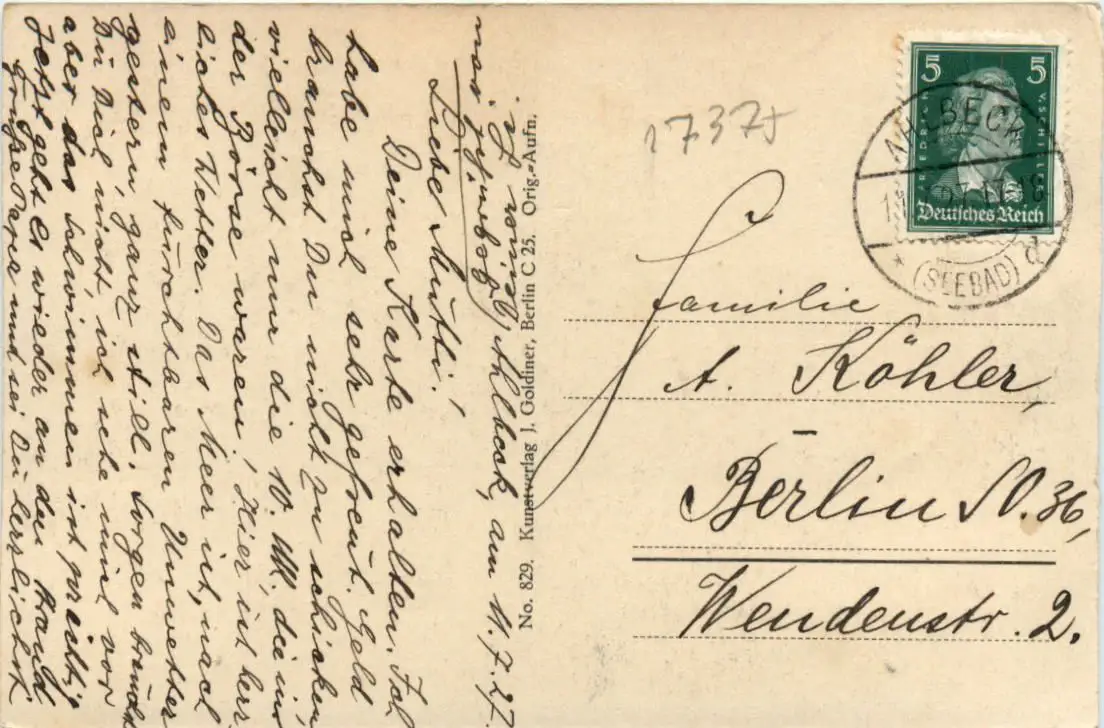 Ahlbeck, am 11.7.27.
Liebe Mutti!
Deine Karte erhalten. Ich
habe mich sehr gefreut. Geld
brauchst Du nicht zu schicken
vielleicht nur die 10. M., die in
der Börse waren! Hier ist herr-
liches Wetter. Das Meer ist, nach
einem furchtbaren Unwetter
gestern, ganz still. Sorgen
Du Dich nicht, ich sehe mich vor
aber das Schwimmen ist
Jetzt geht es wieder an den Strand
Grüße Papa und sei Du herzlichst
No. 829. Kunstverlag J. Goldiner, Berlin C 25. Orig.-Aufn.
17375
5 5
FRIEDRICH V SCHILLER
Deutsches Reich
AHLBECK
27.17-18
* (SEEBAD) d
Familie
A. Köhler,
Berlin SO. 36,
Wendenstr. 2.